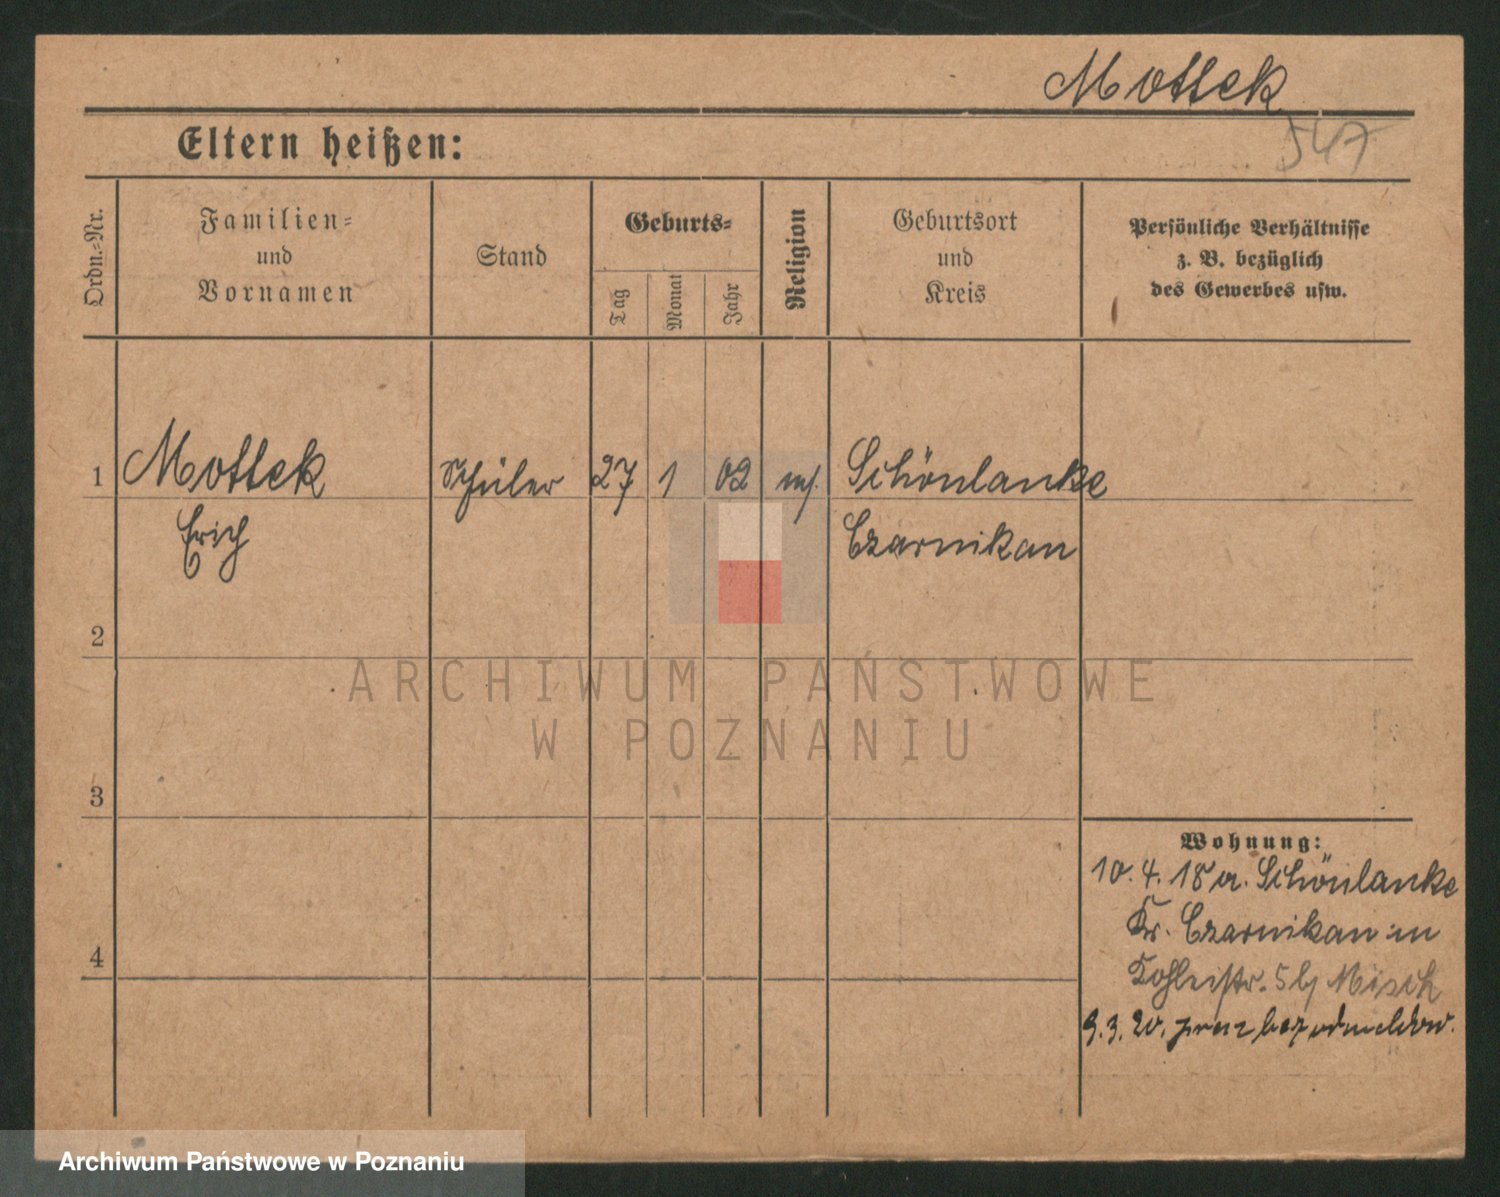 Mottek
547
Eltern heißen:
Ordn.-Nr.
Familien-
und
Vornamen
Stand
Geburts-
Tag
Monat
Jahr
Religion
Geburtsort
und
Kreis
Persönliche Verhältnisse
z. B. bezüglich
des Gewerbes usw.
1 Mottek Schüler 27 1 02 Schönlanke
Erich Czarnikau
2
3
4
ARCHIWUM PAŃSTWOWE
W POZNANIU
Wohnung:
10. 4. 18 a. Schönlanke
Kr. Czarnikau in
5 b/ Misch
9. 3. 20. bez odmeldow.
Archiwum Państwowe w Poznaniu